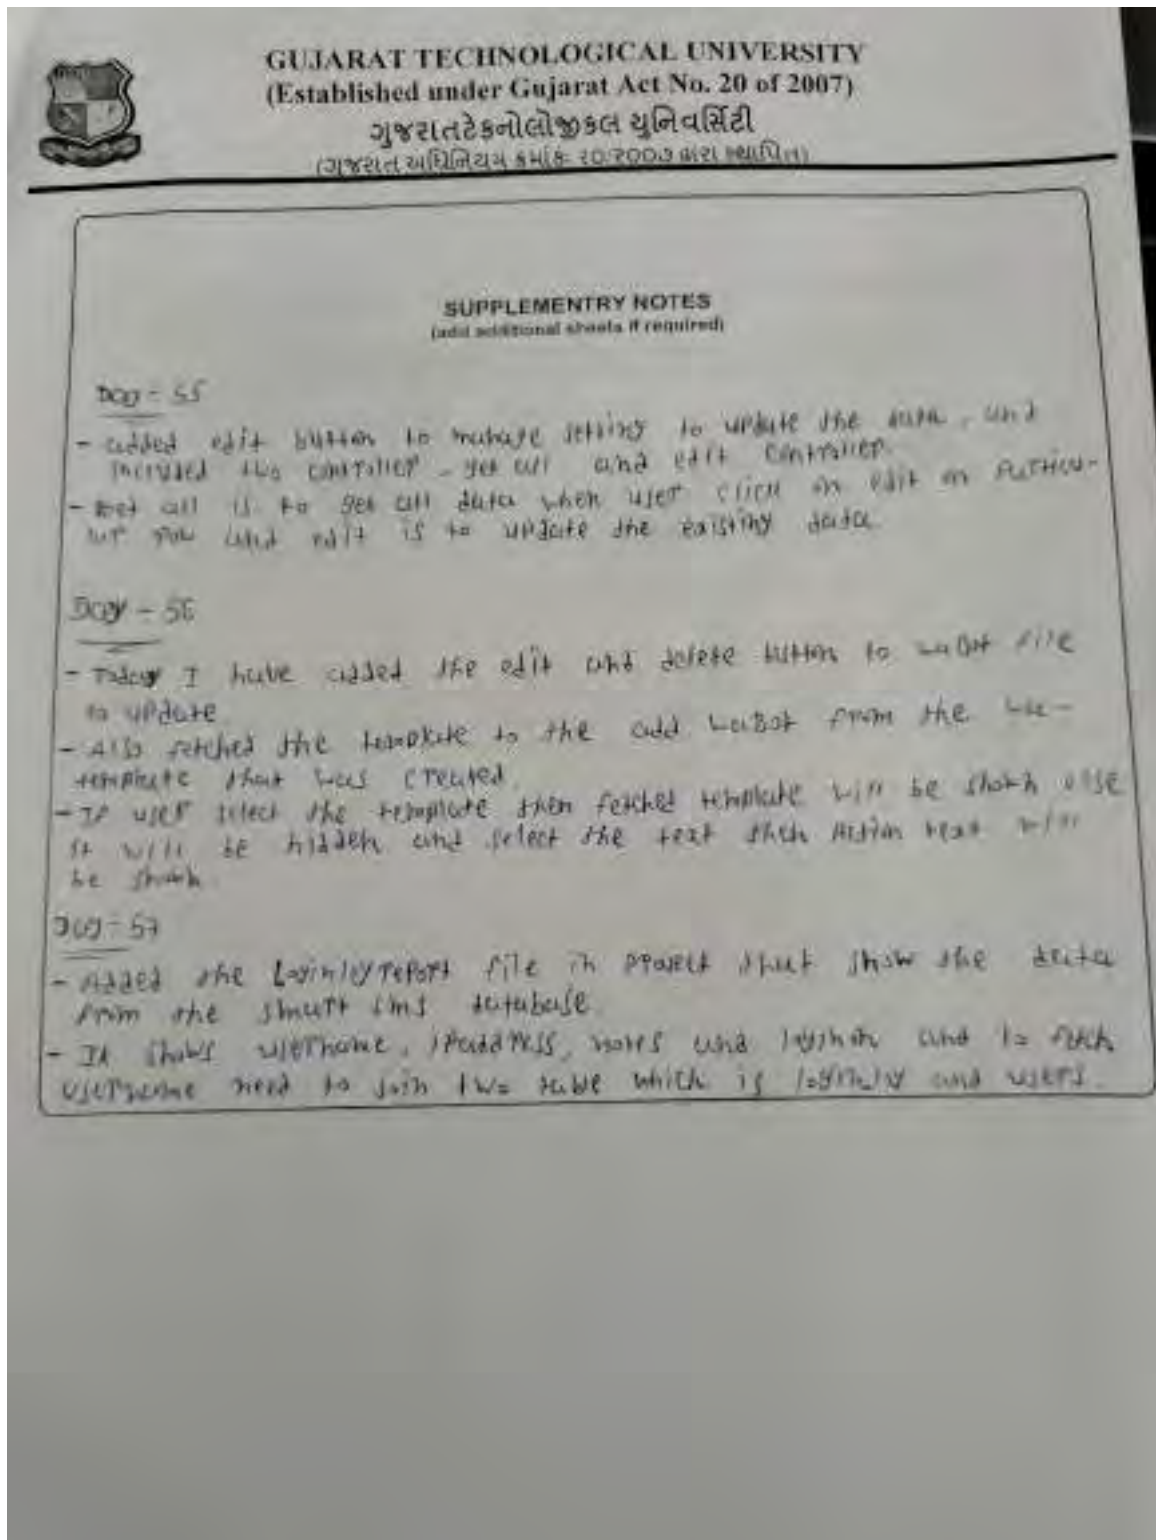 GUJARAT TECHNOLOGICAL UNIVERSITY
(Established under Gujarat Act No. 20 of 2007)
ગુજરાતટેકનોલોજીકલ યુનિવર્સિટી
(ગુજરાત અધિનિયમ ક્રમાંક: ૨૦/૨૦૦૭ દ્વારા સ્થાપિત)
SUPPLEMENTRY NOTES
(add additional sheets if required)
Day - 55
- added edit button to manage setting to update the data, and
included two controller - get all and edit controller.
- Get all is to get all data when user click on edit on particu-
lar row and edit is to update the existing data.
Day - 56
- Today I have added the edit and delete button to waBot file
to update
- Also fetched the template to the add waBot from the wa-
template that was created.
- If user select the template then fetched template will be shown else
it will be hidden and select the text then Action text will
be shown.
Day - 57
- Added the Loginlogreport file in project that show the data
from the smart sms database.
- It shows username, ipaddress, notes and loginon and to fetch
username need to join two table which is loginlog and users.